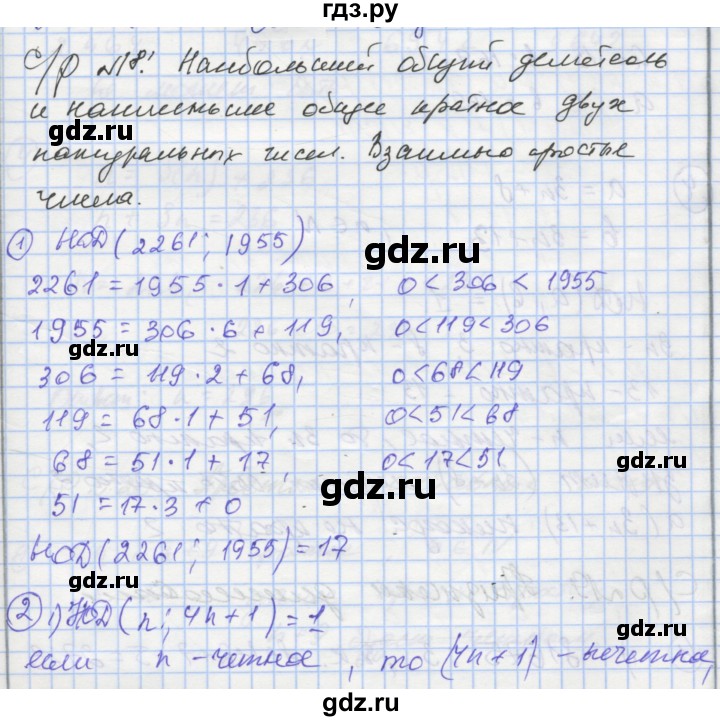 гдз.ру
С/р №18. Наибольший общий делитель
и наименьшее общее кратное двух
натуральных чисел. Взаимно простые
числа.
gdz.ru
1 НОД (2261; 1955)
gdz.ru
2261 = 1955 · 1 + 306, 0 < 306 < 1955
gdz.ru
1955 = 306 · 6 + 119, 0 < 119 < 306
gdz.ru
306 = 119 · 2 + 68, 0 < 68 < 119
119 = 68 · 1 + 51, 0 < 51 < 68
68 = 51 · 1 + 17, 0 < 17 < 51
gdz.ru
gdz.ru
51 = 17 · 3 + 0
НОД (2261; 1955) = 17
gdz.ru
2 1) НОД (n; 4n + 1) = 1
gdz.ru
если n - четное, то (4n + 1) - нечетное,
gdz.ru